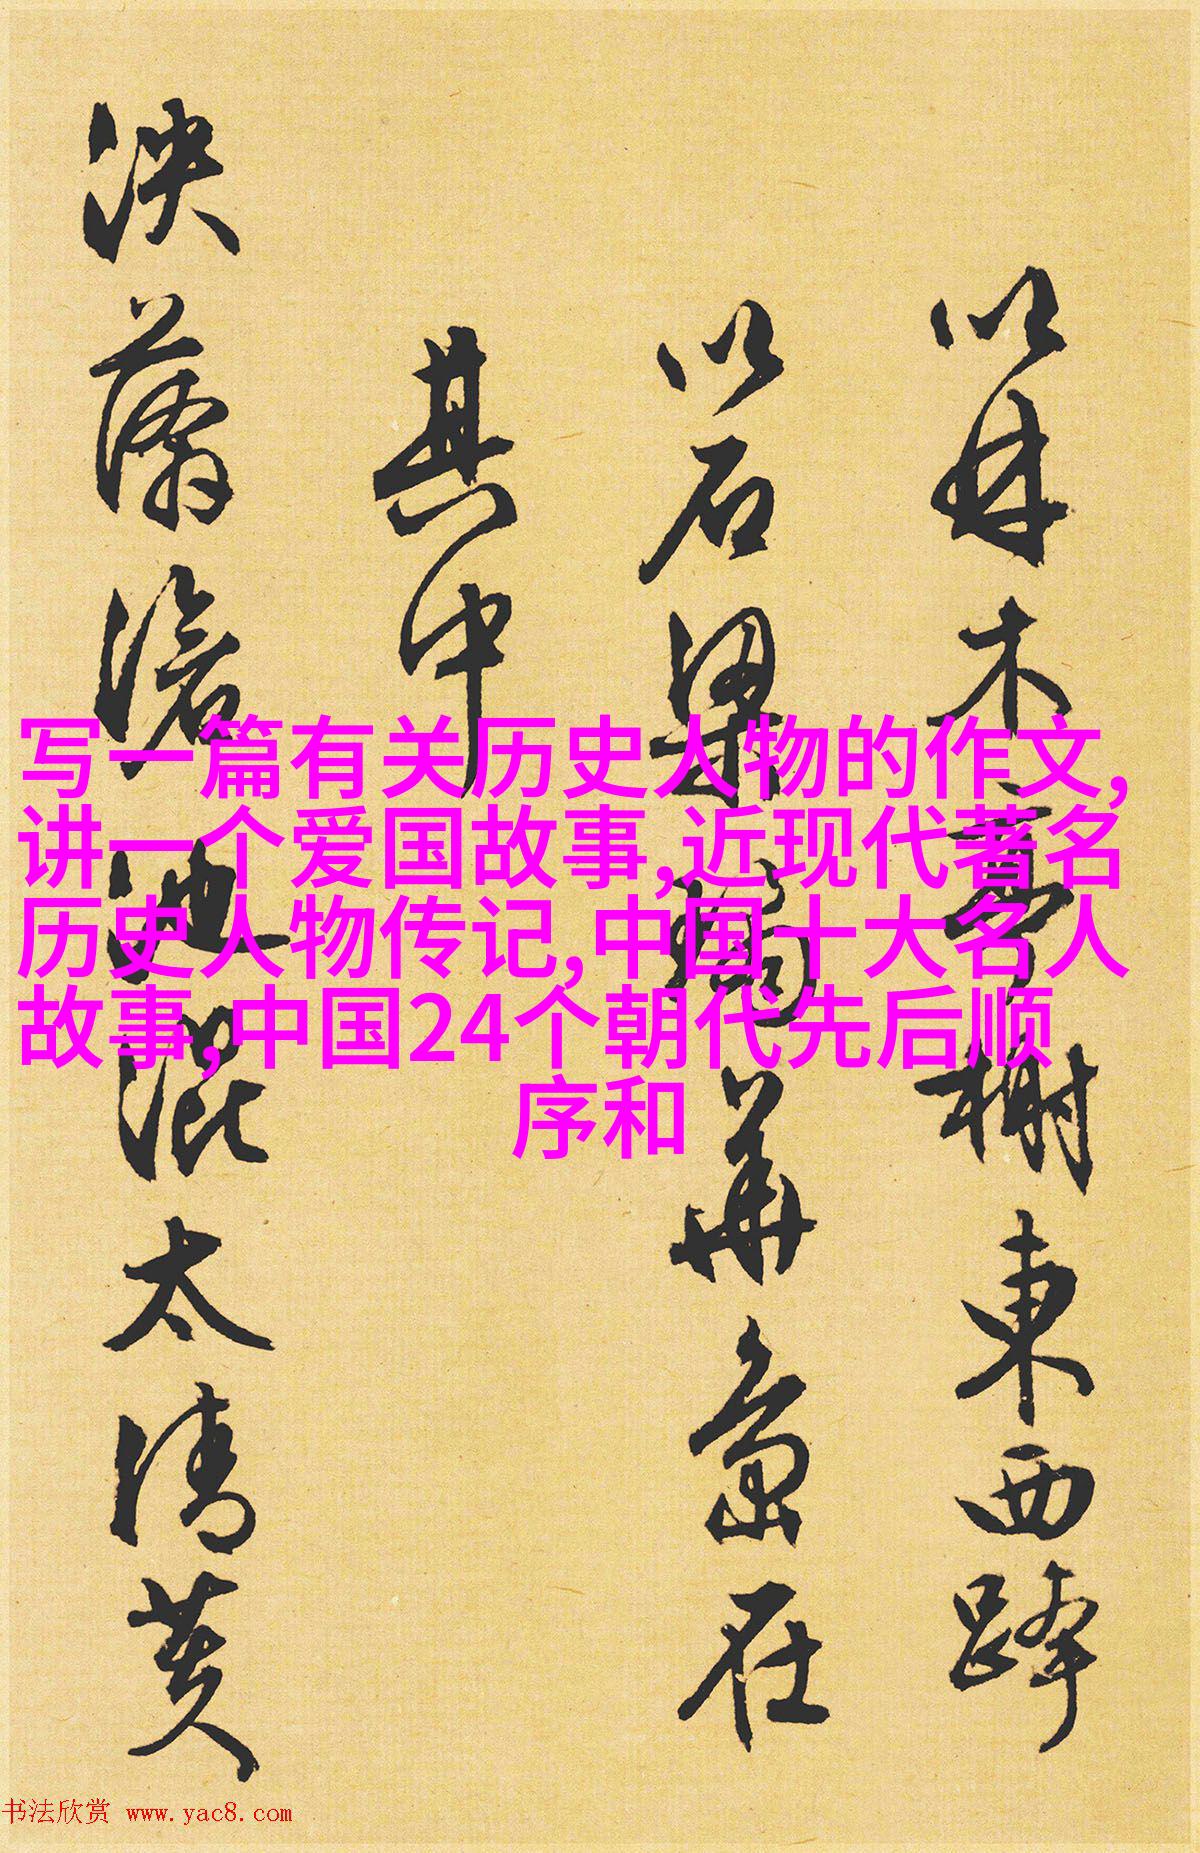 以林木亭榭東西蹕
以石梁翼華島在
其中
泱蒲滄池混太清黄
写一篇有关历史人物的作文,
讲一个爱国故事,近现代著名
历史人物传记,中国十大名人
故事,中国24个朝代先后顺
序和
书法欣赏 www.yac8.com